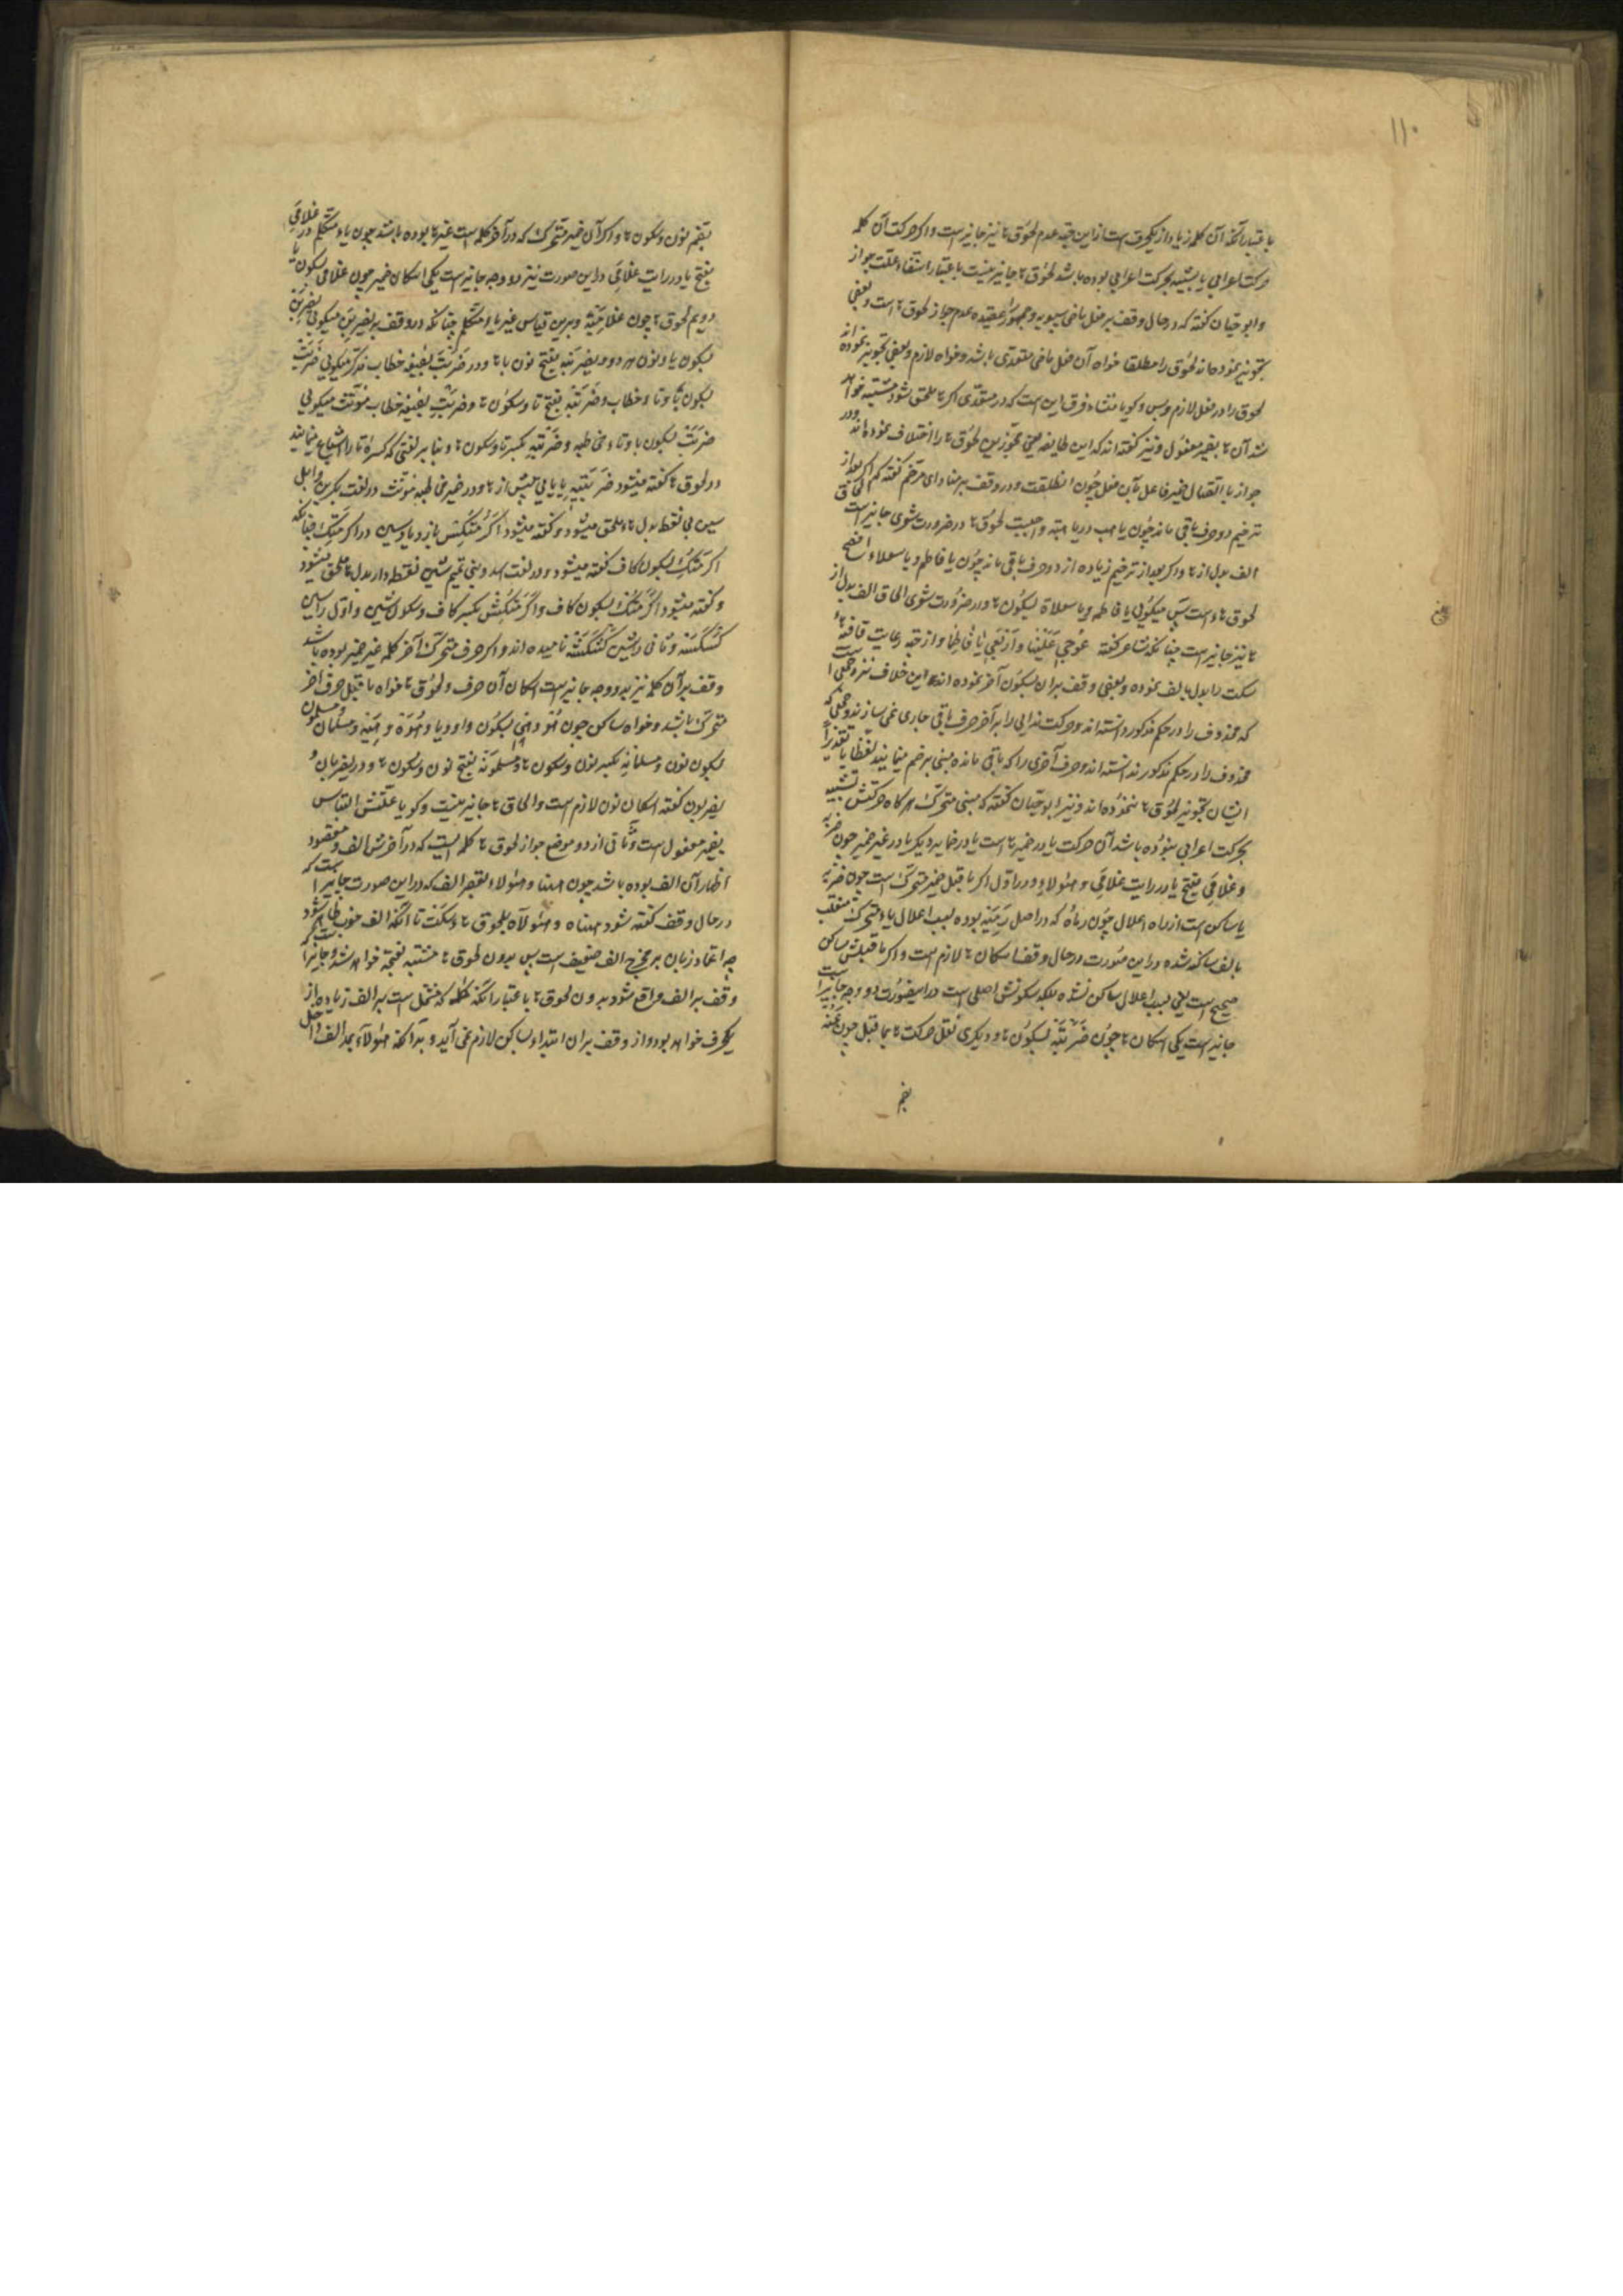 ۱۱۰
باعتبار آنکه آن کلمه زیاد از یکحرف است ازین جهة عدم لحوق ها نیز جایز است و اکر حرکت آن کلمه
حرکت اعرابی یا شبیه بحرکت اعرابی بوده باشد لحوق ها جایز نیست باعتبار انتفاء علت جواز
و ابو حیان کفته که در حال وقف بر فعل ماضی سیبویه و جمهور را عقیده عدم جواز لحوق ها است و بعضی
تجویز نموده اند لحوق را مطلقا خواه آن فعل ماضی متعدی باشد و خواه لازم و بعضی تجویز نموده اند
لحوق را در فعل لازم و بس و کویا منشاء فرق این است که در متعدی اکر ها ملحق شود مشتبه خواهد
شد آن ها بضمیر مفعول و نیز کفته اند که این طایفه یعنی مجوزین لحوق ها را اختلاف نموده اند در
جواز با اتصال ضمیر فاعل بآن فعل چون انطلقت و در وقف بر منادای مرخم کفته که اکر بعد از
ترخیم دو حرف باقی ماند چون یا هب در یا هبه واجبست لحوق ها و در ضرورت شعری جایز است الحاق
الف بدل از ها و اکر بعد از ترخیم زیاده از دو حرف باقی ماند چون یا فاطم و یا سعلاء افصح
لحوق هاء است پس میکویی یا فاطمه و یا سعلاة بسکون ها و در ضرورت شعری الحاق الف بدل از
ها نیز جایز است چنانکه شاعر کفته عوجی علینا و اربعی یا فاطما و از جهة رعایت قافیه هاء
سکت را بدل بالف نموده و بعضی وقف بران بسکون آخر نموده اند و این خلاف نزد جمعی است
که محذوف را در حکم مذکور دانسته اند و حرکت ندایی را بر آخر حرف باقی جاری نمی سازند و جمعی که
محذوف را در حکم مذکور ندانسته اند و حرف آخری را که باقی مانده مبنی بر ضم مینمایند لفظا یا تقدیراً
ایشان تجویز لحوق ها ننموده اند و نیز ابو حیان کفته که مبنی متحرک هر کاه حرکتش شبیه
بحرکت اعرابی نبوده باشد آن حرکت یا در ضمیر ها است یا در ضمایر دیکر یا در غیر ضمیر چون ضربه
و غلامی بفتح یا در رایت غلامی و هؤلاء و در اول اکر ماقبل ضمیر متحرک است چون ضربه
یا ساکن است از راه اعلال چون رماه که در اصل رمیه بوده بسبب اعلال یاء متحرک منقلب
بالف ساکنه شده در این صورت در حال وقف اسکان ها لازم است و اکر ماقبلش ساکن
صحیح است یعنی بسبب اعلال ساکن نشده بلکه سکونش اصلی است در اینصورت دو وجه جایز است
جایز است یکی اسکان ها چون ضربته بسکون ها و دیکری نقل حرکت ها بماقبل چون عنه
بضم
بضم نون و سکون ها و اکر آن ضمیر متحرک که در آخر کلمه است غیر ها بوده باشد چون یاء متکلم در غلامی
بفتح یا در رایت غلامی در این صورت نیز دو وجه جایز است یکی اسکان ضمیر چون غلامی بسکون یا
دویم لحوق ها چون غلامیه و برین قیاس غیر یاء متکلم چنانکه در وقف بر یضربن میکویی یضربن
بسکون یا و نون هر دو و یضربنه بفتح نون با ها و در ضربت بصیغه خطاب مذکر میکویی ضربت
بسکون تاء خطاب و ضربته بفتح تا و سکون ها و ضربت بصیغه خطاب مؤنث میکویی
ضربت بسکون تاء مخاطبه و ضربته بکسر تا و سکون ها و بنا بر لغتی که کسره تا را اشباع مینمایند
در لحوق ها کفته میشود ضربتیه با یایی پیش از ها و در ضمیر مخاطبه مؤنث در لغت بکر بن وایل
سین بی نقطه بدل هاء ملحق میشود و کفته میشود اکرمتکس بازدیاد سین در اکرمتک چنانکه
اکرمتک بسکون کاف کفته میشود و در لغت اسد و بنی تمیم شین نقطه دار بدل ها ملحق میشود
و کفته میشود اکرمتک بسکون کاف و اکرمتکش بکسر کاف و سکون شین و اول را سین
کسکسه و ثانی را شین کشکشه نامیده اند و اکر حرف متحرک آخر کلمه غیر ضمیر بوده باشد
وقف بر آن کلمه نیز بدو وجه جایز است اسکان آن حرف و لحوق ها خواه ماقبل حرف آخر
متحرک باشد و خواه ساکن چون هو و هی بسکون واو و یا و هوه و هیه و مسلمان و مسلمون
بسکون نون و مسلمانه بکسر نون و سکون ها و مسلمونه بفتح نون و سکون ها و در یضربان و
یضربون کفته اسکان نون لازم است و الحاق ها جایز نیست و کویا علتش التباس
بضمیر مفعول است و ثانی از دو موضع جواز لحوق ها کلمه ایست که در آخرش الف و مقصود
اظهار آن الف بوده باشد چون ههنا و هؤلاء بقصر الف که در این صورت جایز است که
در حال وقف کفته شود ههناه و هؤلاه بلحوق هاء سکت تا آنکه الف خوب ظاهر شود
چه اعتماد زبان بر مخرج الف ضعیف است پس بدون لحوق ها مشتبه بفتحه خواهد شد و جایز است که
وقف بر الف واقع شود بدون لحوق ها باعتبار آنکه کلمه که مشتمل است بر الف زیاده از
یکحرف خواهد بود و از وقف بران ابتداء بساکن لازم نمی آید و بدانکه هؤلاء بمد الف داخل